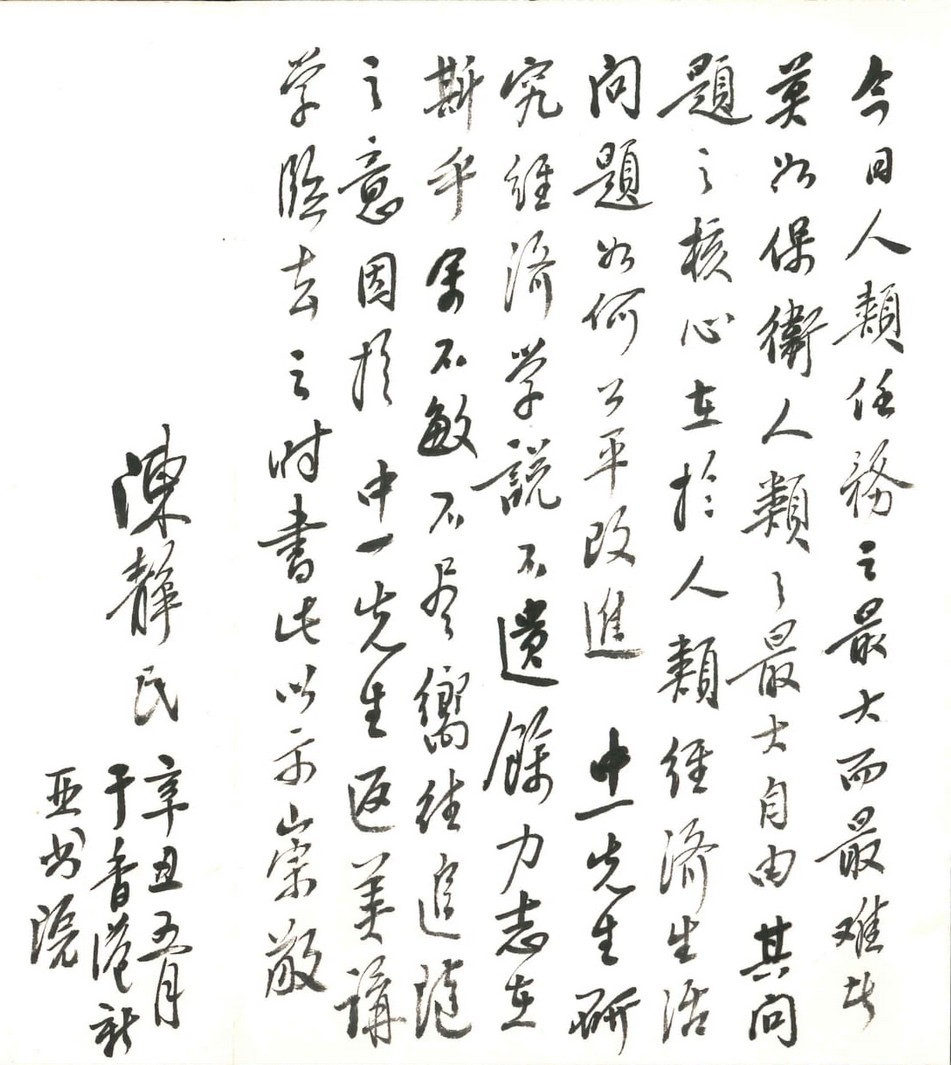 今日人類任務之最大而最難者
莫如保衛人類之最大自由其问
題之核心在於人類经濟生活
问題如何公平改進中一先生研
究经济学説不遗餘力志在
斯乎余不敏不尽嚮往追随
之意因於中一先生返美講
学临去之时書此以示崇敬
陳靜民
辛丑五月
于香港新
亚书院